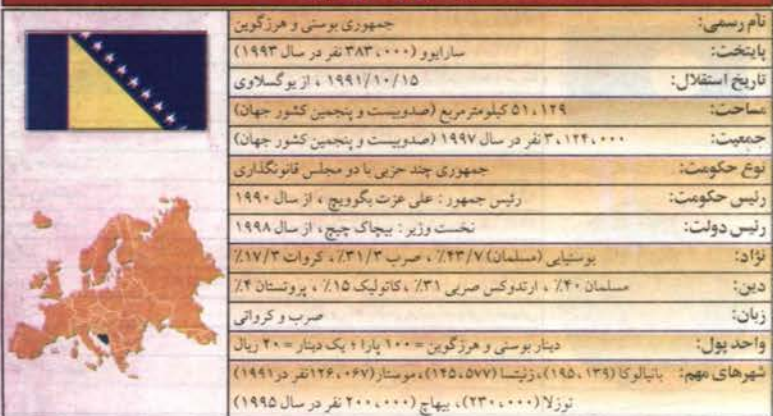 نام رسمی: جمهوری بوسنی و هرزگوین
پایتخت: سارایوو (۳۸۳،۰۰۰ نفر در سال ۱۹۹۳)
تاریخ استقلال: ۱۹۹۱/۱۰/۱۵ ، از یوگسلاوی
مساحت: ۵۱،۱۲۹ کیلومترمربع (صدوبیست و پنجمین کشور جهان)
جمعیت: ۳،۱۲۴،۰۰۰ نفر در سال ۱۹۹۷ (صدوبیست و پنجمین کشور جهان)
نوع حکومت: جمهوری چند حزبی با دو مجلس قانونگذاری
رئیس حکومت: رئیس جمهور : علی عزت بگوویچ ، از سال ۱۹۹۰
رئیس دولت: نخست وزیر : بیچاک چیچ، از سال ۱۹۹۸
نژاد: بوسنیایی (مسلمان) ۴۳/۷٪ ، صرب ۳۱/۳٪ ، کروات ۱۷/۳٪
دین: مسلمان ۴۰٪ ، ارتدوکس صربی ۳۱٪ ، کاتولیک ۱۵٪ ، پروتستان ۴٪
زبان: صرب و کرواتی
واحد پول: دینار بوسنی و هرزگوین = ۱۰۰ پارا ؛ یک دینار = ۲۰ ریال
شهرهای مهم: بانیالوکا (۱۹۵،۱۳۹)، زنیتسا (۱۴۵،۵۷۷)، موستار (۱۲۶،۰۶۷نفر در ۱۹۹۱)
توزلا (۲۳۰،۰۰۰) ، بیهاچ (۲۰۰،۰۰۰ نفر در سال ۱۹۹۵)